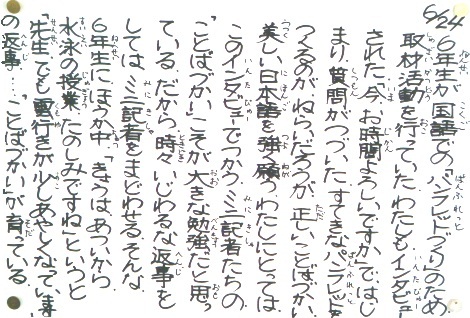 6/24 6年生が国語での「パンフレットづくり」のため
取材活動を行っていた。わたしもインタビュー
された。今、お時間よろしいですか。ではじ
まり、質問がつづいた。すてきなパンフレットを
つくるのがねらいだろうが、正しいことばづかい
美しい日本語を強く願うわたしにとっては、
このインタビューでつかう、ミニ記者たちの
「ことばづかい」こそが大きな勉強だと思っ
ている。だから、時々いじわるな返事を
しては、ミニ記者をまどわせる。そんな
6年生にほうか中、「きょうは、あついから
水泳の授業、たのしみですね」というと
「先生、でも雲行きが少しあやしくなっています
の返事…。「ことばづかい」が育っている。